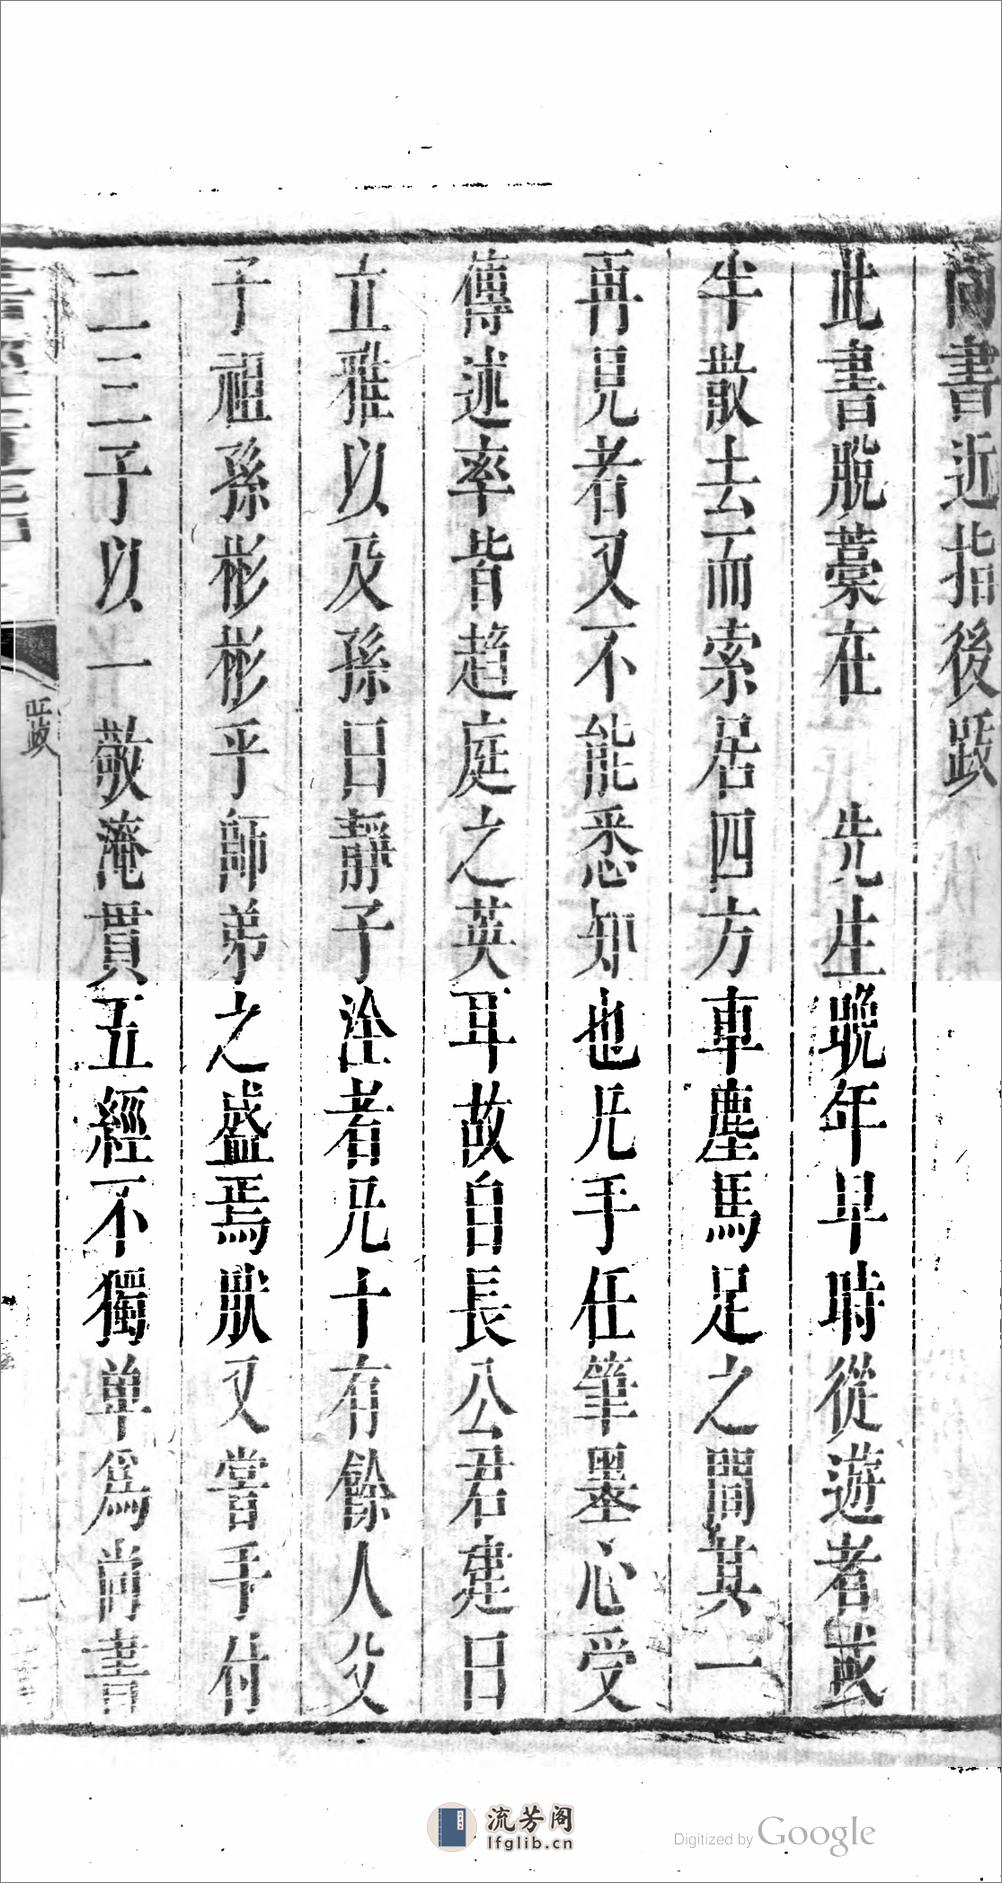 尚書近指後跋
此書脫藁在　先生晚年早時從遊者或
半散去而索居四方車塵馬足之間其一
再見者又不能悉知也凡手任筆墨心受
傳述率皆趨庭之英耳故自長公君建曰
立雅以及孫曰靜子洤者凡十有餘人父
子祖孫彬彬乎師弟之盛焉猷又嘗手付
二三子以一敬淹貫五經不獨单為尚書
跋
流芳阁
lfglib.cn
Digitized by Google